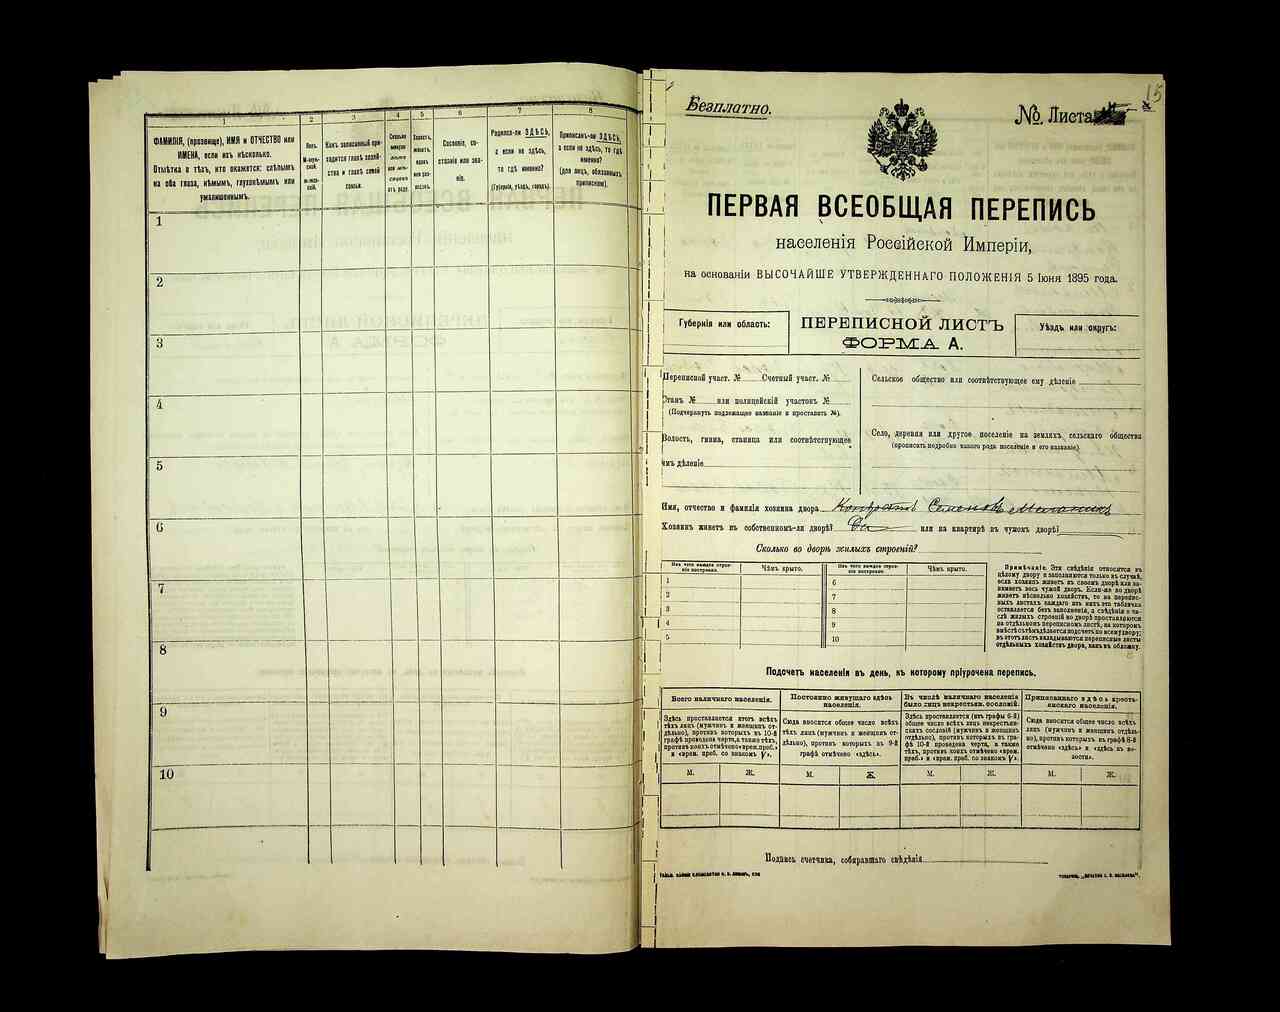 1
2
3
4
5
6
7
8
ФАМИЛІЯ, (прозвище), ИМЯ и ОТЧЕСТВО или
ИМЕНА, если ихъ нѣсколько.
Отмѣтка о тѣхъ, кто окажется: слѣпымъ
на оба глаза, нѣмымъ, глухонѣмымъ или
умалишеннымъ.
Полъ.
М-муж-
ской.
Ж-жен-
скій.
Какъ записанный при-
ходится главѣ хозяй-
ства и главѣ своей
семьи.
Сколько
минуло
лѣтъ
или мѣ-
сяцевъ
отъ роду.
Холостъ,
женатъ,
вдовъ
или раз-
веденъ.
Сословіе, со-
стояніе или зва-
ніе.
Родился-ли ЗДѢСЬ,
а если не здѣсь,
то гдѣ именно?
(Губернія, уѣздъ, городъ).
Приписанъ-ли ЗДѢСЬ,
а если не здѣсь, то гдѣ
именно?
(для лицъ, обязанныхъ
припискою).
1
2
3
4
5
6
7
8
9
10
15
Безплатно.
№ Листа
ПЕРВАЯ ВСЕОБЩАЯ ПЕРЕПИСЬ
населенія Россійской Имперіи,
на основаніи ВЫСОЧАЙШЕ УТВЕРЖДЕННАГО ПОЛОЖЕНІЯ 5 Іюня 1895 года.
Губернія или область:
ПЕРЕПИСНОЙ ЛИСТЪ
ФОРМА А.
Уѣздъ или округъ:
Переписной участ. № Счетный участ. №
Станъ № или полицейскій участокъ №
(Подчеркнуть подлежащее названіе и проставить №).
Волость, гмина, станица или соотвѣтствующее
имъ дѣленіе
Сельское общество или соотвѣтствующее ему дѣленіе
Село, деревня или другое поселеніе на земляхъ сельскаго общества
(прописать подробно какого рода поселеніе и его названіе).
Имя, отчество и фамилія хозяина двора Семеновъ
Хозяинъ живетъ въ собственномъ-ли дворѣ? Да или на квартирѣ въ чужомъ дворѣ?
Сколько во дворѣ жилыхъ строеній?
Изъ чего каждое строе-
ніе построено.
Чѣмъ крыто.
Изъ чего каждое строе-
ніе построено.
Чѣмъ крыто.
1
2
3
4
5
6
7
8
9
10
Примѣчаніе. Эти свѣдѣнія относятся къ
цѣлому двору и заполняются только въ случаѣ,
если хозяинъ живетъ въ своемъ дворѣ или за-
нимаетъ весь чужой дворъ. Если-же во дворѣ
живетъ нѣсколько хозяйствъ, то на перепис-
ныхъ листахъ каждаго изъ нихъ эта табличка
оставляется безъ заполненія, а свѣдѣнія о чи-
слѣ жилыхъ строеній во дворѣ проставляются
на отдѣльномъ переписномъ листѣ, на которомъ
вмѣстѣ съ тѣмъ дѣлается подсчетъ по всему двору;
въ этотъ листъ вкладываются переписные листы
отдѣльныхъ хозяйствъ двора, какъ въ обложку.
Подсчетъ населенія въ день, къ которому пріурочена перепись.
Всего наличнаго населенія.
Постоянно живущаго здѣсь
населенія.
Въ числѣ наличнаго населенія
было лицъ некрестьян. сословій.
Приписаннаго здѣсь кресть-
янскаго населенія.
Здѣсь проставляется итогъ всѣхъ
тѣхъ лицъ (мужчинъ и женщинъ от-
дѣльно), противъ которыхъ въ 10-й
графѣ проведена черта, а также тѣхъ,
противъ коихъ отмѣчено «врем. преб.»
и «врем. преб. со знакомъ V».
Сюда вносится общее число всѣхъ
тѣхъ лицъ (мужчинъ и женщинъ от-
дѣльно), противъ которыхъ въ 9-й
графѣ отмѣчено «здѣсь».
Здѣсь проставляется (изъ графы 6-й)
общее число лицъ некрестьян-
скихъ сословій (мужчинъ и женщинъ
отдѣльно), противъ которыхъ въ гра-
фѣ 10-й проведена черта, а также
тѣхъ, противъ коихъ отмѣчено «врем.
преб.» и «врем. преб. со знакомъ V».
Сюда вносится общее число всѣхъ
тѣхъ лицъ (мужчинъ и женщинъ отдѣль-
но), противъ которыхъ въ графѣ 8-й
отмѣчено «здѣсь» и «здѣсь въ во-
лости».
М.
Ж.
М.
Ж.
М.
Ж.
М.
Ж.
Подпись счетчика, собиравшаго свѣдѣнія